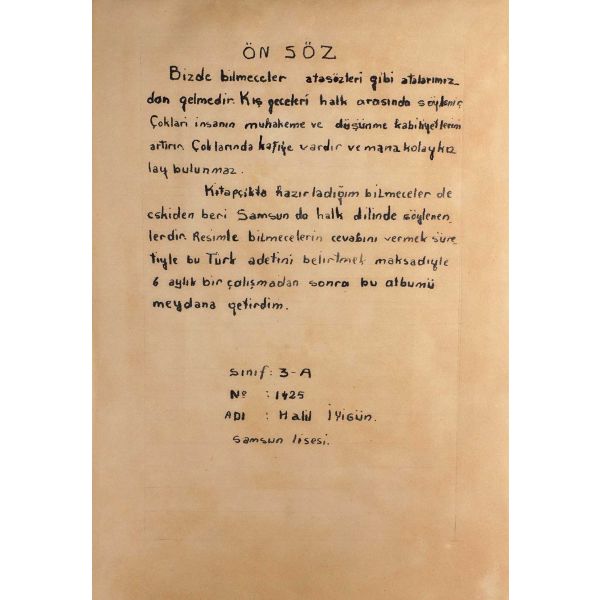 ÖN SÖZ
Bizde bilmeceler atasözleri gibi atalarımız_
dan gelmedir. Kış geceleri halk arasında söylenir
Çokları insanın muhakeme ve düşünme kabiliyetlerini
artırır. Çoklarında kafiye vardır ve mana kolay ko_
lay bulunmaz.
Kitapçıkta hazırladığım bilmeceler de
eskiden beri Samsun da halk dilinde söylenen_
lerdir. Resimle bilmecelerin cevabını vermek süre_
tiyle bu Türk adetini belirtmek maksadiyle
6 aylık bir çalışmadan sonra bu albumü
meydana getirdim.
Sınıf : 3-A
No : 1425
ADI : Halil İYİGÜN.
Samsun lisesi.